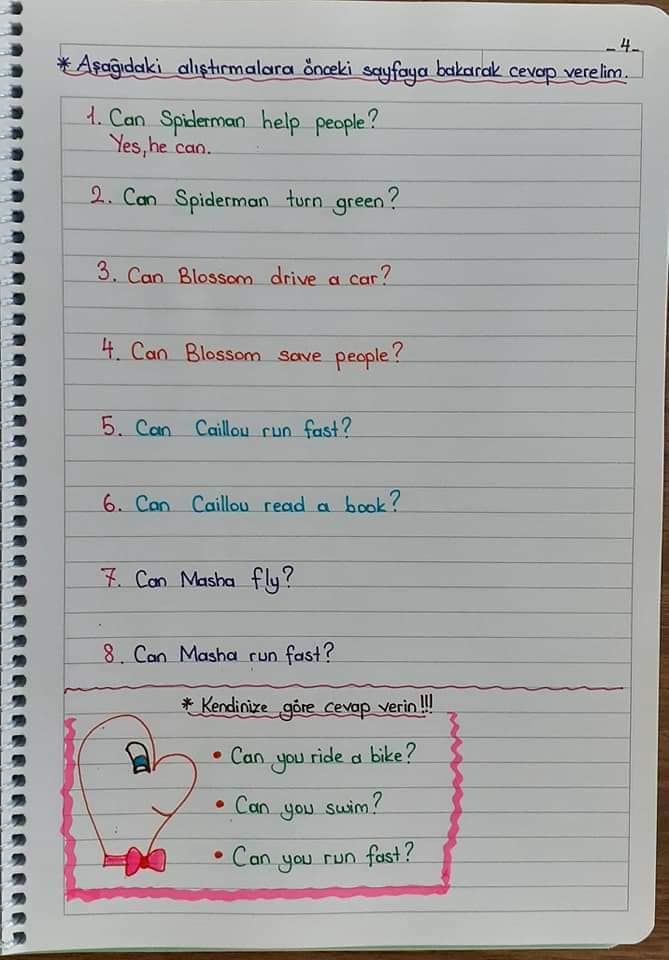 _4_
* Aşağıdaki alıştırmalara önceki sayfaya bakarak cevap verelim.
1. Can Spiderman help people?
Yes, he can.
2. Can Spiderman turn green?
3. Can Blossom drive a car?
4. Can Blossom save people?
5. Can Caillou run fast?
6. Can Caillou read a book?
7. Can Masha fly?
8. Can Masha run fast?
* Kendinize göre cevap verin!!!
• Can you ride a bike?
• Can you swim?
• Can you run fast?